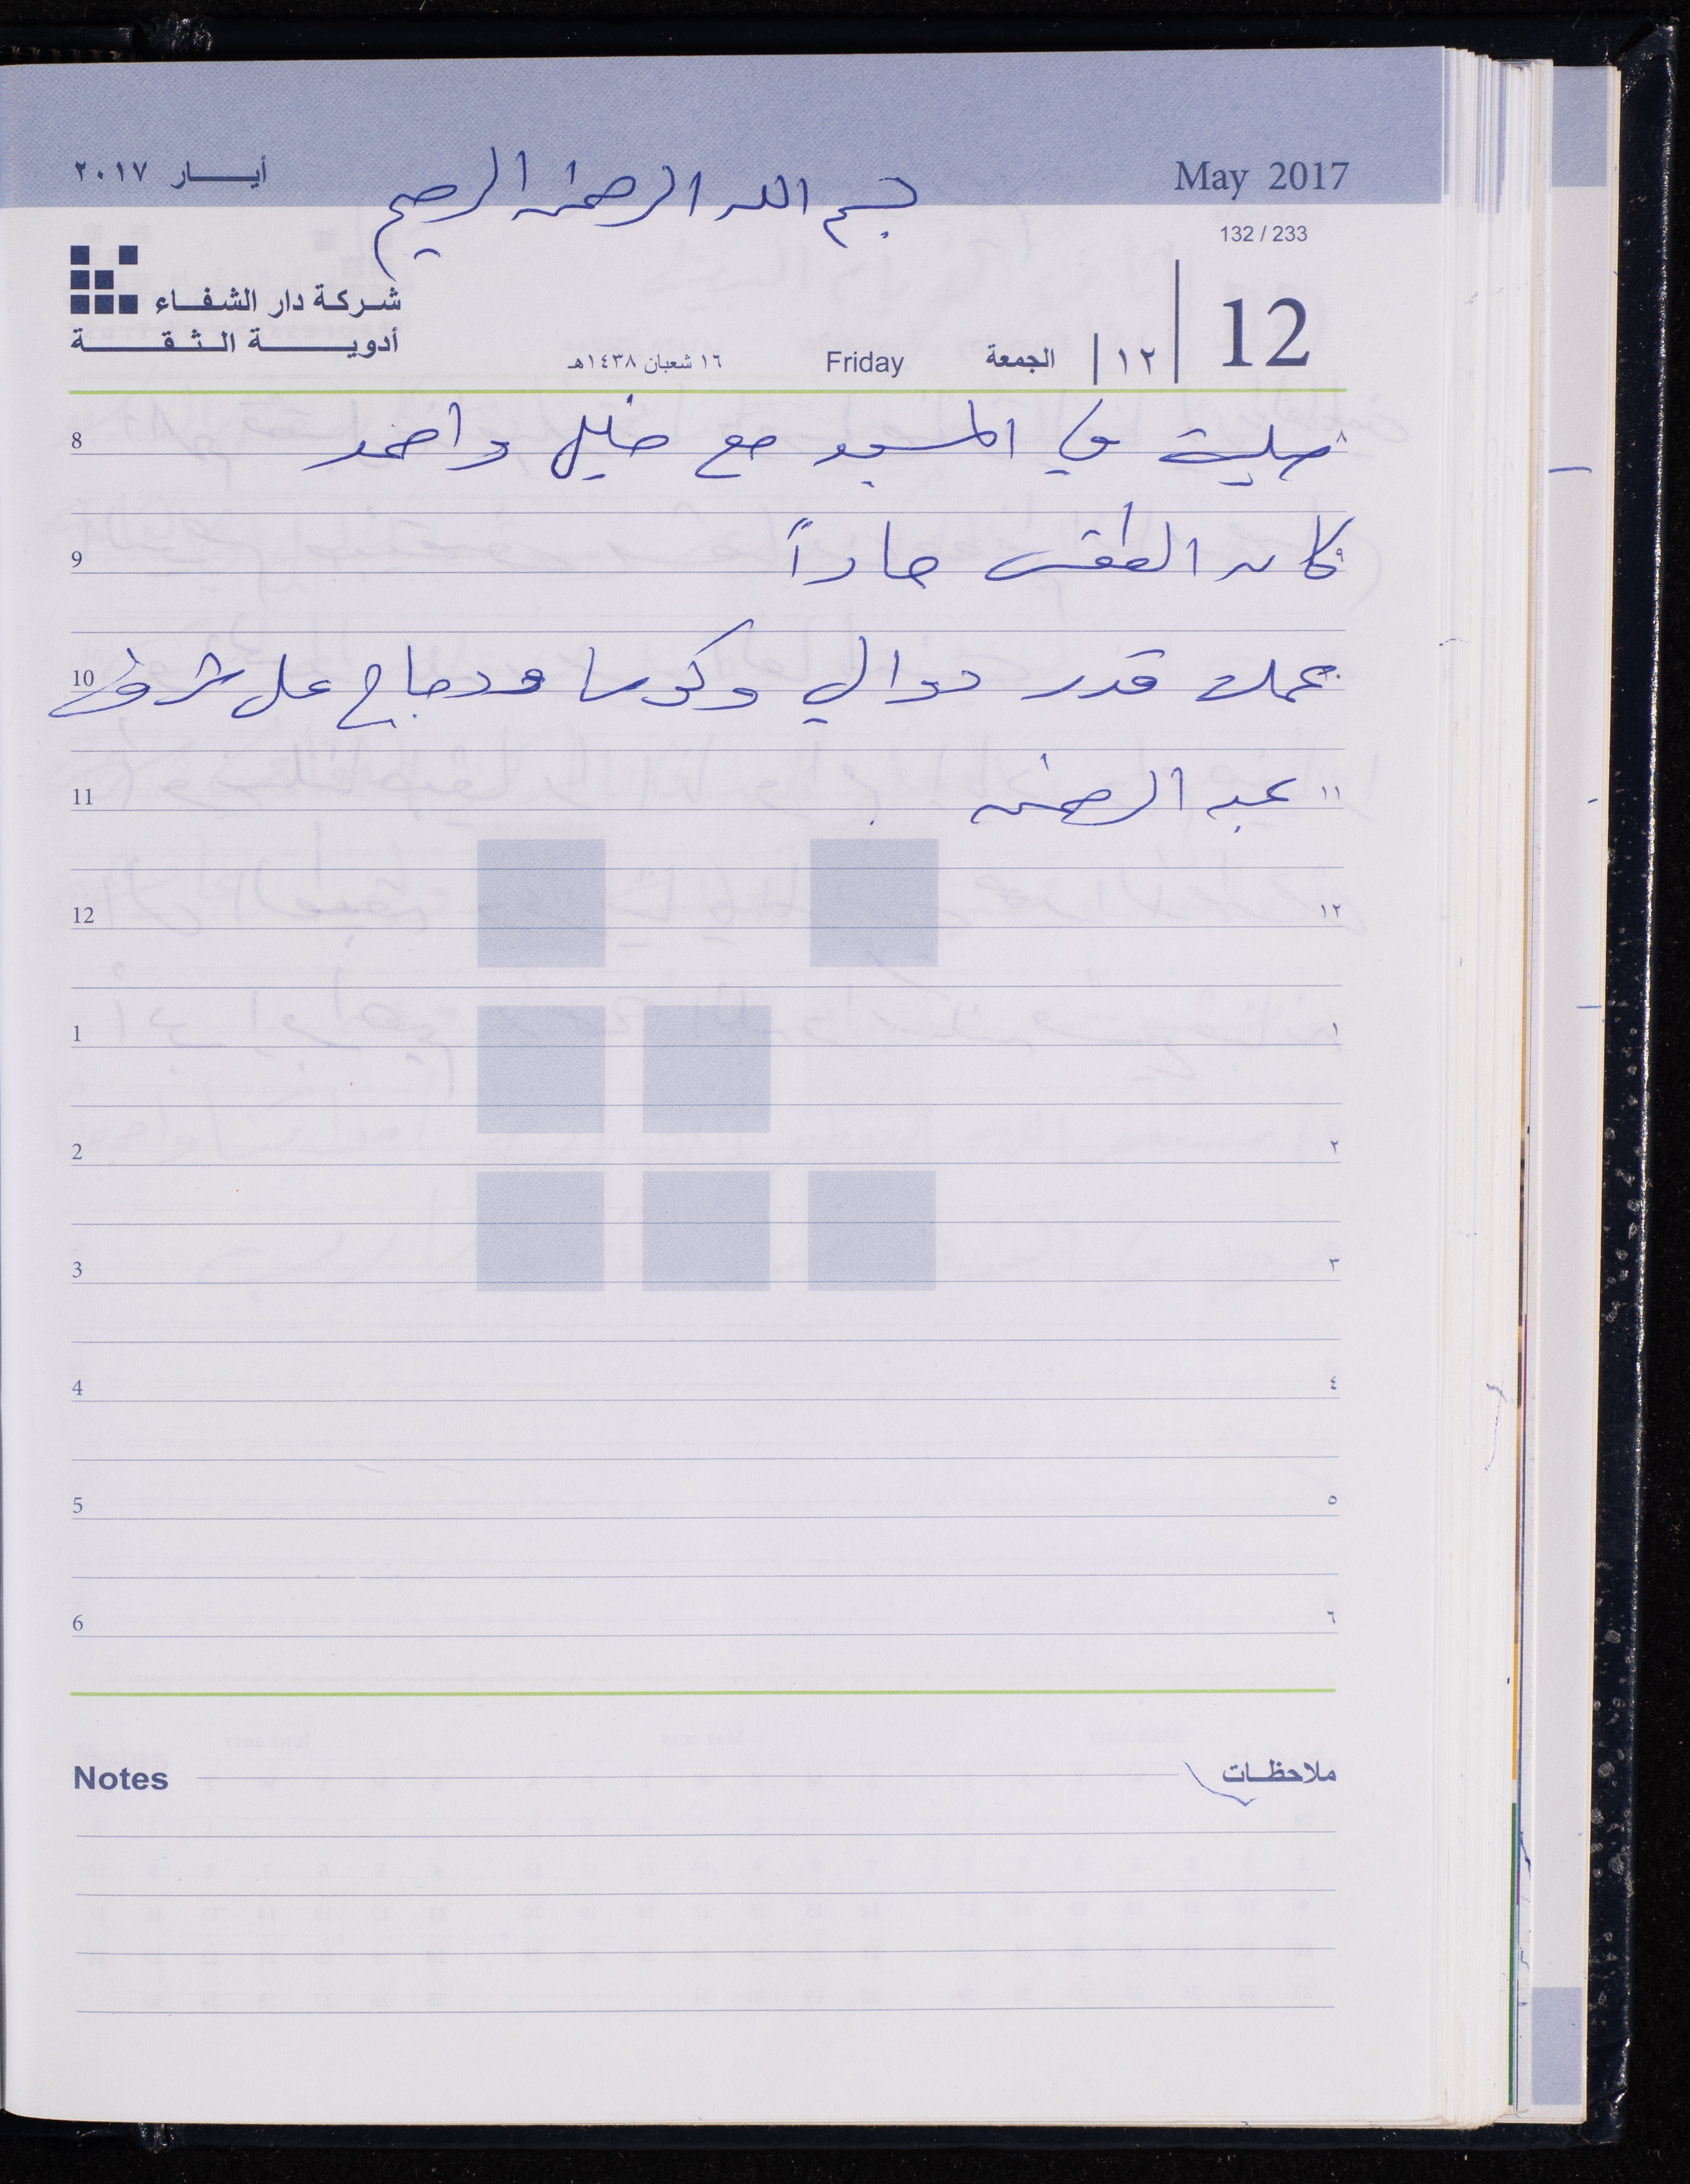 أيـــار ٢٠١٧
May 2017
بسم الله الرحمن الرحيم
132 / 233
شركة دار الشفاء
أدوية الثقة
12
١٢
الجمعة
Friday
١٦ شعبان ١٤٣٨هـ
8 صليت في المسجد مع خليل واحمد
9 كان الطقس حاراً ٩
10 عملت قدر دوالي وكوسا ودجاج على شرف
11 عبد الرحمن . ١١
12 ١٢
1 ١
2 ٢
3 ٣
4 ٤
5 ٥
6 ٦
Notes ملاحظات